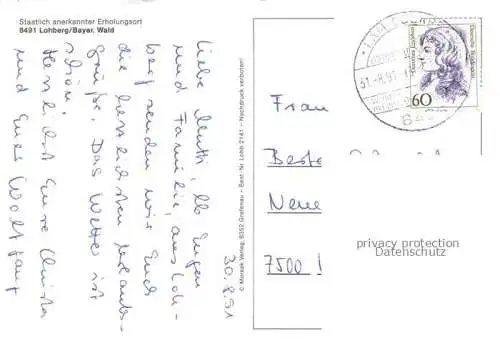 Staatlich anerkannter Erholungsort
8491 Lohberg/Bayer. Wald
30.8.91
Liebe Mutti, lb Eugen
und Familie, aus Loh-
berg senden wir Euch
die herzlichsten Urlaubs-
grüße. Das Wetter ist
schön.
Herzlichst Eure Christa
und Euer Wolfgang
© Morsak Verlag, 8352 Grafenau - Best.-Nr. Lohb 2141 - Nachdruck verboten!
Frau
Beste
Neue
7500
31.-8.91
Deutsche Bundespost
60
privacy protection
Datenschutz